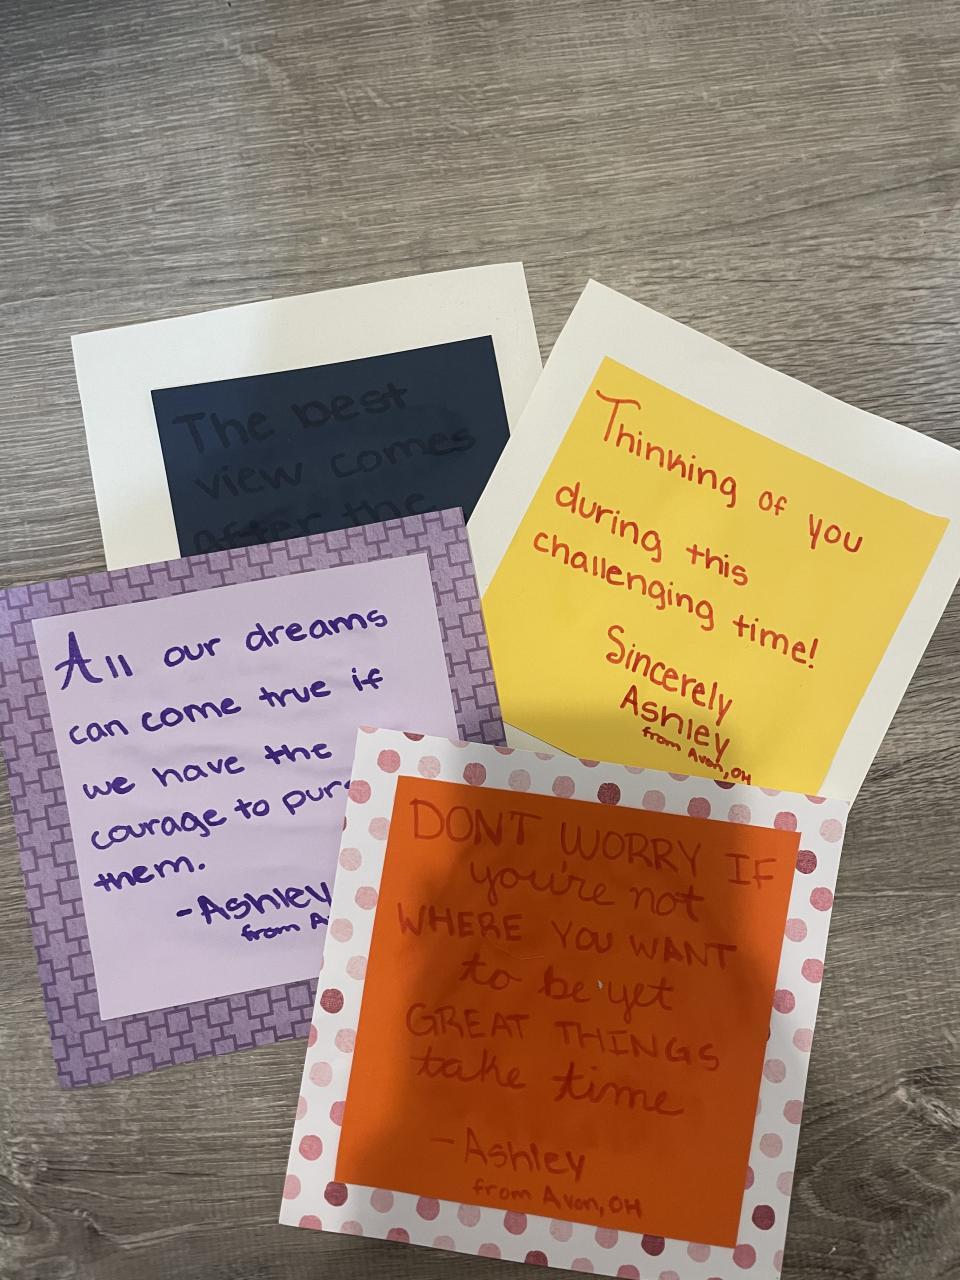 The best
view comes
after the
Thinking of you
during this
challenging time!
Sincerely
Ashley
from Avon, OH
All our dreams
can come true if
we have the
courage to purs
them.
-Ashley
from A
DONT WORRY IF
you're not
WHERE YOU WANT
to be yet
GREAT THINGS
take time
-Ashley
from Avon, OH